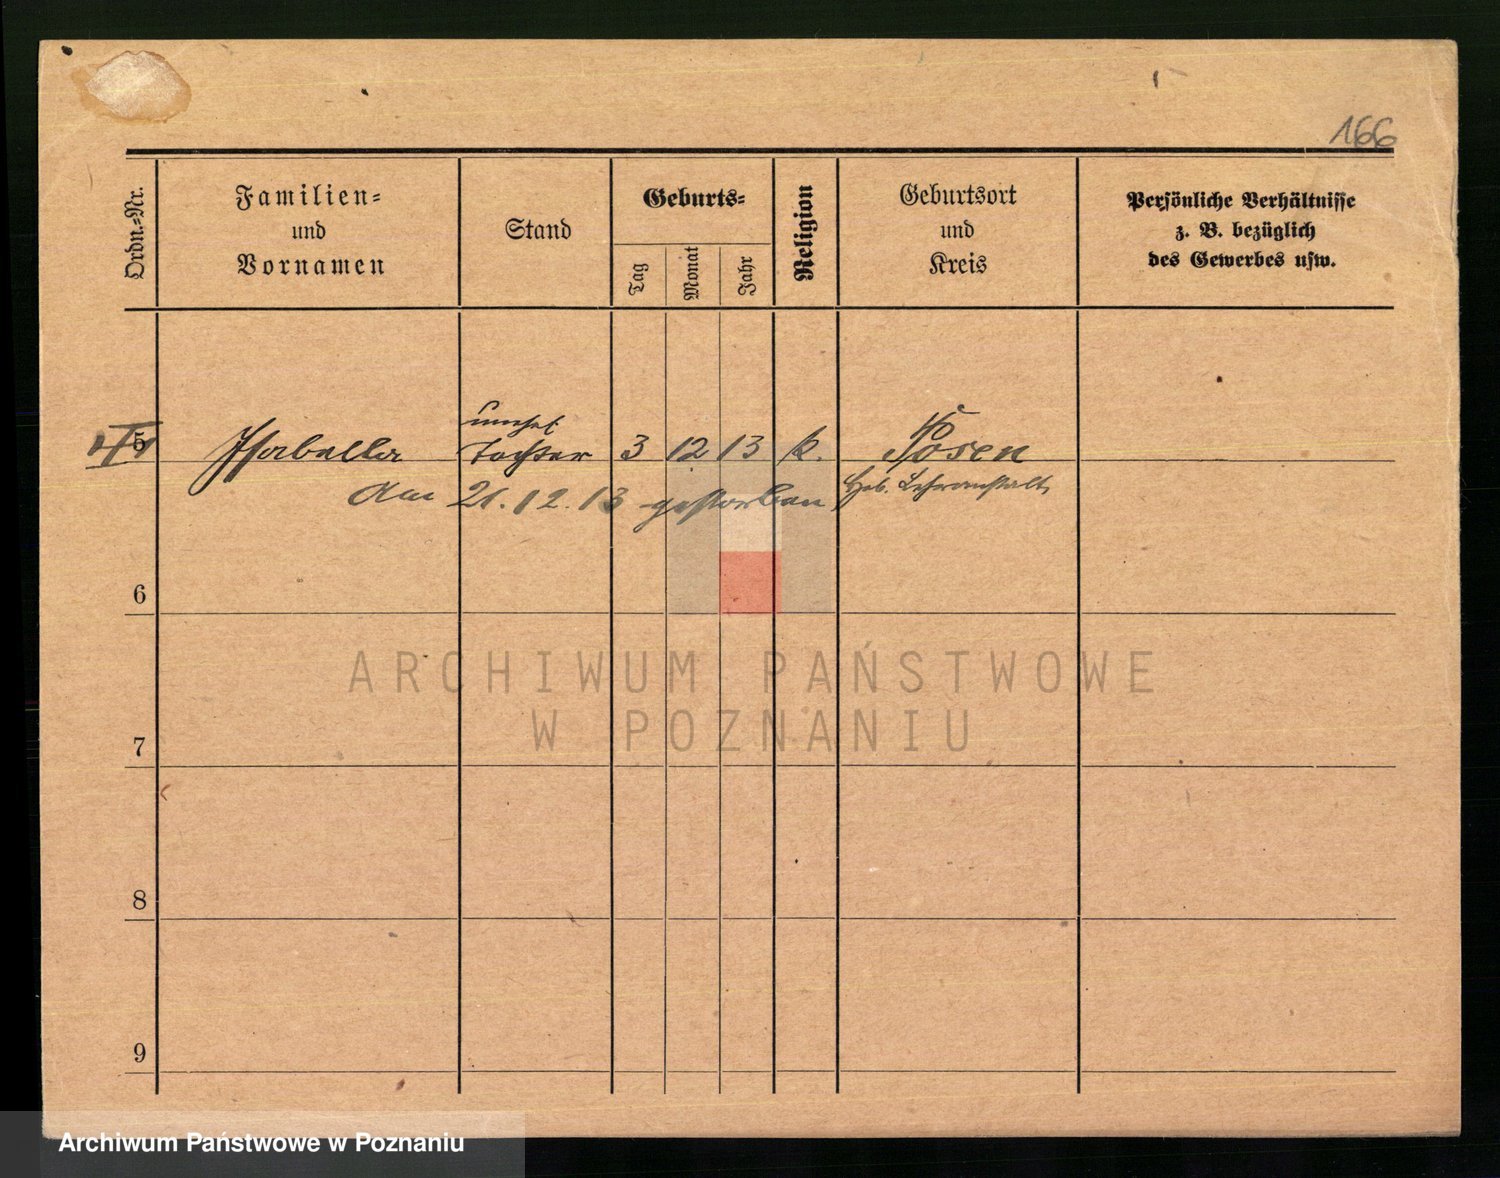 166
Ordn.-Nr.
Familien-
und
Vornamen
Stand
Geburts-
Tag
Monat
Jahr
Religion
Geburtsort
und
Kreis
Persönliche Verhältnisse
z. B. bezüglich
des Gewerbes usw.
unehel.
5 Isabella Tochter 3 12 13 k. Posen
Heb. Lehranstalt
Am 21.12.13 gestorben
6
ARCHIWUM PAŃSTWOWE
W POZNANIU
7
8
9
Archiwum Państwowe w Poznaniu